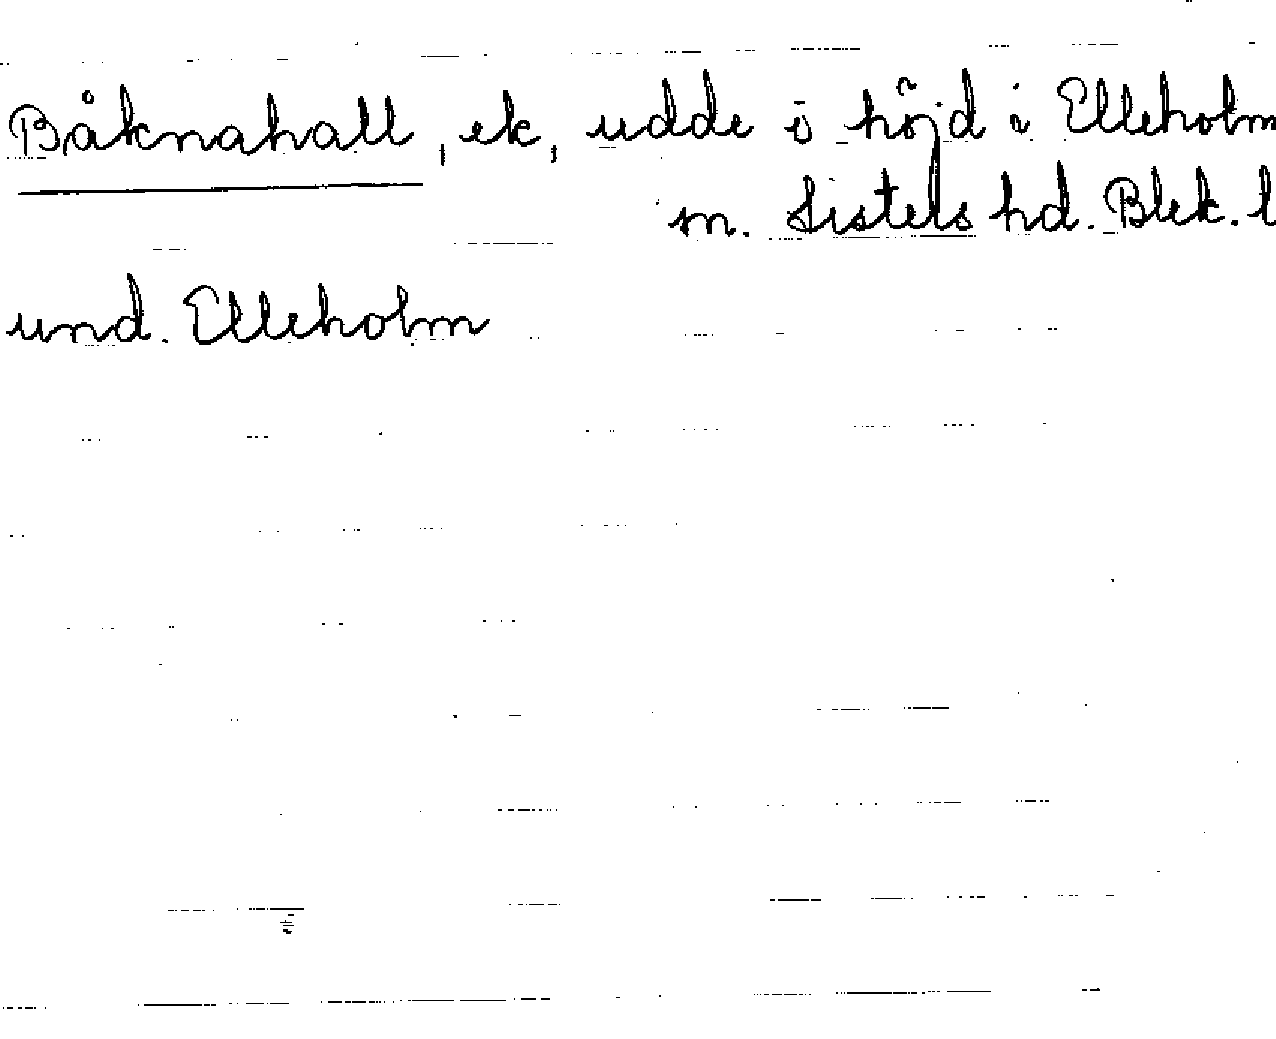 Båknahall, ek, udde i höjd i Elleholm
m. Listers hd. Blek. l
und. Elleholm